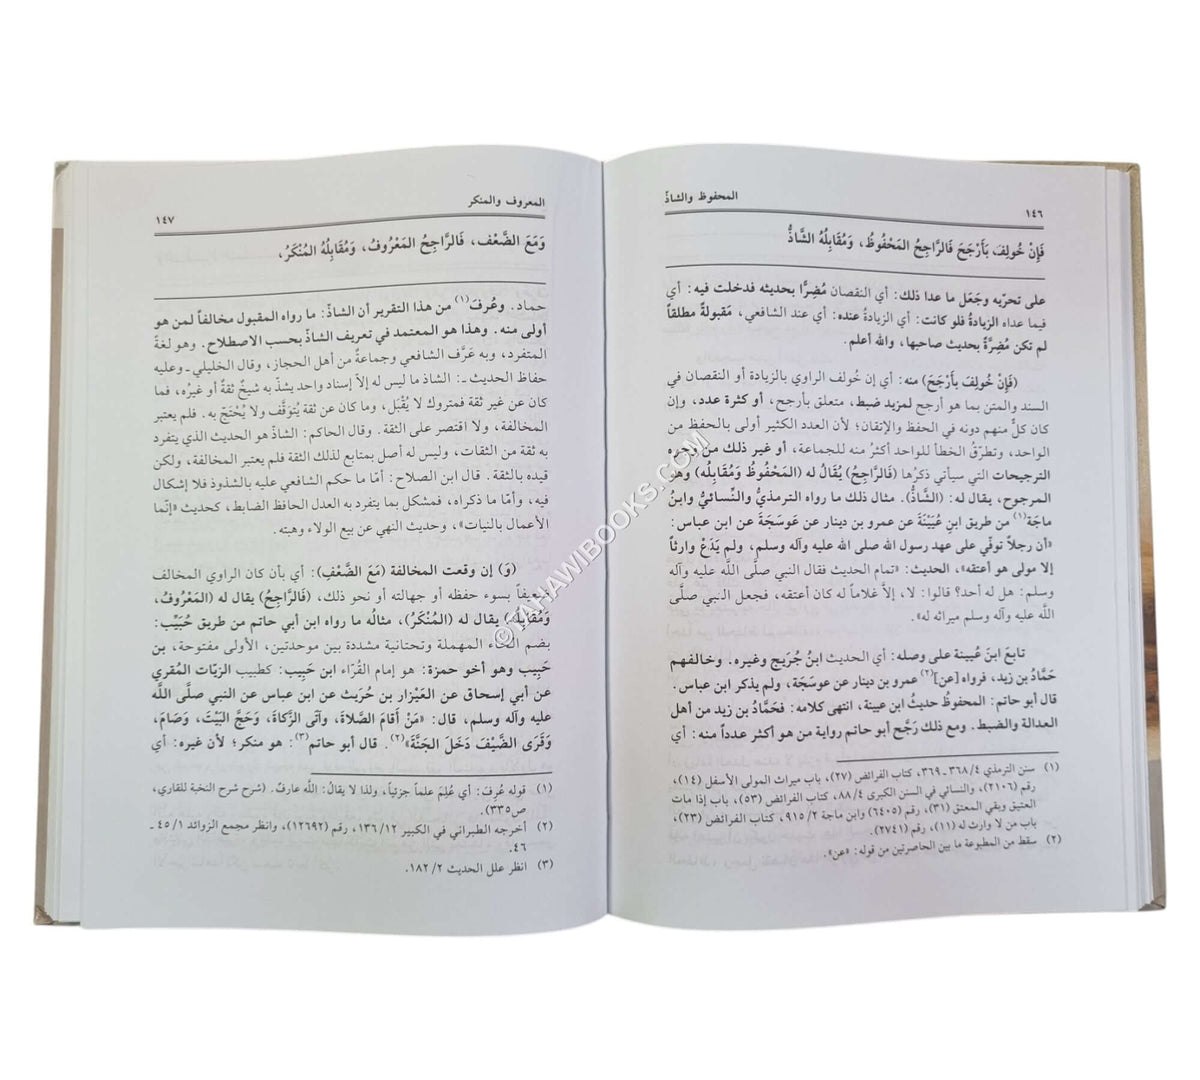 ١٤٦
المحفوظ والشاذّ
فَإِنْ خُولِفَ بَأَرْجَحَ فَالرَّاجِحُ المَحْفُوظُ، وَمُقَابِلُهُ الشَّاذُّ
على تحرّيه وجَعَل ما عدا ذلك: أي النقصان مُضِرًّا بحديثه فدخلت فيه: أي
فيما عداه الزيادةُ فلو كانت: أي الزيادةُ عنده: أي عند الشافعي، مَقبولةً مطلقاً
لم تكن مُضِرَّةً بحديث صاحبها، والله أعلم.
(فَإِنْ خُولِفَ بأَرْجَحَ) منه: أي إن خُولف الراوي بالزيادة أو النقصان في
السند والمتن بما هو أرجح لمزيد ضبط، متعلق بأرجح، أو كثرة عدد، وإن
كان كلٌّ منهم دونه في الحفظ والإتقان؛ لأن العدد الكثير أولى بالحفظ من
الواحد، وتطرّقُ الخطأ للواحد أكثرُ منه للجماعة، أو غير ذلك من وجوه
الترجيحات التي سيأتي ذكرُها (فَالرَاجِحُ) يُقالُ له (المَحْفُوظُ وَمُقَابِلُه) وهو
المرجوح، يقال له: (الشَّاذُّ). مثال ذلك ما رواه الترمذيُّ والنِّسائيُّ وابنُ
ماجَة(١) من طريق ابنِ عُيَيْنَةَ عن عمرو بن دينار عن عَوسَجَةَ عن ابن عباس:
«أن رجلاً توفّي على عهد رسول الله صلى الله عليه وآله وسلم، ولم يَدَعْ وارثاً
إلا مولى هو أعتقه»، الحديث: «تمام الحديث فقال النبي صلَّى اللَّه عليه وآله
وسلم: هل له أحد؟ قالوا: لا، إلاَّ غلاماً له كان أعتقه، فجعل النبي صلَّى
اللَّه عليه وآله وسلم ميراثه له».
تابعَ ابنَ عُيينة على وصله: أي الحديث ابنُ جُريج وغيره. وخالفهم
حَمَّادُ بن زيد، فرواه [عن](٢) عمرو بن دينار عن عوسَجَة، ولم يذكر ابن عباس.
قال أبو حاتم: المحفوظُ حديثُ ابن عيينة، انتهى كلامه: فحَمَّادُ بن زيد من أهل
العدالة والضبط. ومع ذلك رَجَّح أبو حاتم رواية من هو أكثر عدداً منه: أي
(١) سنن الترمذي ٤/ ٣٦٨ ـ ٣٦٩، كتاب الفرائض (٢٧)، باب ميراث المولى الأسفل (١٤)،
رقم (٢١٠٦)، والنسائي في السنن الكبرى ٤/ ٨٨، كتاب الفرائض (٥٣)، باب إذا مات
العتيق وبقي المعتق (٣١)، رقم (٦٤٠٥) وابن ماجة ٢/ ٩١٥، كتاب الفرائض (٢٣)،
باب من لا وارث له (١١)، رقم (٢٧٤١).
(٢) سقط من المطبوعة ما بين الحاصرتين من قوله: «عن».
المعروف والمنكر
١٤٧
وَمَعَ الضَّعْف، فَالرَّاجِحُ المَعْرُوفُ، وَمُقَابِلُهُ المُنْكَرُ،
حماد. وعُرِفَ(١) من هذا التقرير أن الشاذّ: ما رواه المقبول مخالفاً لمن هو
أولى منه. وهذا هو المعتمد في تعريف الشاذّ بحسب الاصطلاح. وهو لغةً
المتفرد، وبه عَرَّف الشافعي وجماعةٌ من أهل الحجاز، وقال الخليلي ـ وعليه
حفاظ الحديث ـ: الشاذ ما ليس له إلاَّ إسناد واحد يشذّ به شيخٌ ثقةٌ أو غيرُه، فما
كان عن غير ثقة فمتروك لا يُقْبَل، وما كان عن ثقة يُتَوَقَّف ولا يُحْتَجّ به. فلم يعتبر
المخالفة، ولا اقتصر على الثقة. وقال الحاكم: الشاذّ هو الحديث الذي يتفرد
به ثقة من الثقات، وليس له أصل بمتابع لذلك الثقة فلم يعتبر المخالفة، ولكن
قيده بالثقة. قال ابن الصلاح: أمّا ما حكم الشافعي عليه بالشذوذ فلا إشكال
فيه، وأمّا ما ذكراه، فمشكل بما يتفرد به العدل الحافظ الضابط، كحديث «إنّما
الأعمال بالنيات»، وحديث النهي عن بيع الولاء وهبته.
(وَ) إن وقعت المخالفة (مَعَ الضَّعْفِ): أي بأن كان الراوي المخالف
ضعيفاً بسوء حفظه أو جهالته أو نحو ذلك، (فَالرَاجحُ) يقال له (المَعْرُوفُ،
وَمُقَابِلُه) يقال له (المُنْكَرُ)، مثالُه ما رواه ابن أبي حاتم من طريق حُبَيِّب:
بضم الحاء المهملة وتحتانية مشددة بين موحدتين، الأولى مفتوحة، بن
حَبِيب وهو أخو حمزة: هو إمام القُرّاء ابن حَبِيب: كطبيب الزيّات المُقري
عن أبي إسحاق عن العَيْزار بن حُرَيث عن ابن عباس عن النبي صلَّى اللَّه
عليه وآله وسلم، قال: «مَنْ أَقامَ الصَّلاةَ، وَآتَى الزَّكاةَ، وَحَجَّ البَيْتَ، وَصَامَ،
وَقَرَى الضَّيْفَ دَخَلَ الجَنَّةَ»(٢). قال أبو حاتم(٣): هو منكر؛ لأن غيره: أي
(١) قوله عُرِفَ: أي عُلِمَ علماً جزئياً، ولذا لا يقالُ: اللَّه عارفٌ. (شرح شرح النخبة للقاري،
ص٣٣٥).
(٢) أخرجه الطبراني في الكبير ١٢/ ١٣٦، رقم (١٢٦٩٢)، وانظر مجمع الزوائد ١/ ٤٥ ـ
٤٦.
(٣) انظر علل الحديث ٢/ ١٨٢.
©TAHAWIBOOKS.COM